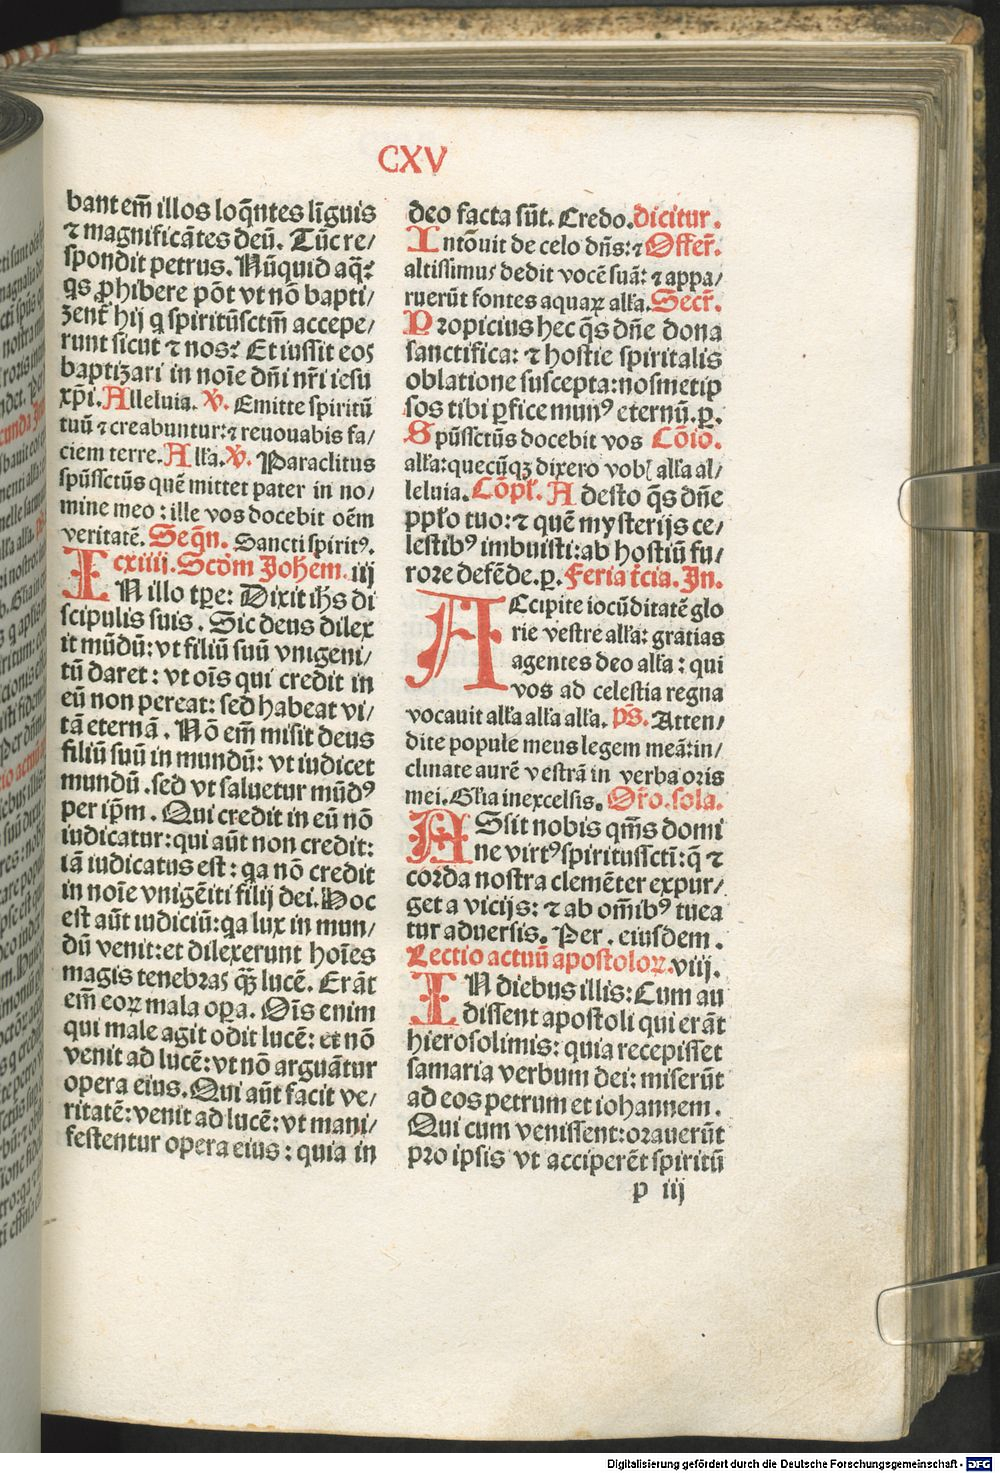 CXV
bant em̄ illos loq̄ntes līguis
⁊ magnificātes deū. Tūc re/
spondit petrus. Nūquid aq̄ꝫ
q̄s ꝓhibere pōt vt nō bapti/
zent᷑ hij q̄ spiritūsctm̄ accepe/
runt sicut ⁊ nos? Et iussit eos
baptizari in noīe dn̄i nr̄i iesu
xp̄i. Alleluia. V̄. Emitte spiritū
tuū ⁊ creabuntur: ⁊ reuouabis fa/
ciem terre. All̄a. V̄. Paraclitus
spūssctūs quē mittet pater in no/
mine meo: ille vos docebit oēm
veritatē. Seq̄n. Sancti spiritꝰ.
Icxiiii. Scd̄m Joh̄em. iij
IN illo tp̄e: Dixit ih̄s di
scipulis suis. Sic deus dilex
it mūdū: vt filiū suū vnigeni/
tū daret: vt oīs qui credit in
eū non pereat: sed habeat vi/
tā eternā. Nō em̄ misit deus
filiū suū in mundū: vt iudicet
mundū. sed vt saluetur mūdꝰ
per ip̄m. Qui credit in eū nō
iudicatur: qui aūt non credit:
iā iudicatus est: q̄a nō credit
in noīe vnigēiti filij dei. Hoc
est aūt iudiciū: q̄a lux in mun/
dū venit: et dilexerunt hoīes
magis tenebras q̄ꝫ lucē. Erāt
em̄ eoꝝ mala oꝑa. Oīs enim
qui male agit odit lucē: et nō
venit ad lucē: vt nō arguātur
opera eius. Qui aūt facit ve/
ritatē: venit ad lucē: vt mani/
festentur opera eius: quia in
deo facta sūt. Credo. dicitur.
Intōuit de celo dn̄s: ⁊ Offer̄.
altissimus dedit vocē suā: ⁊ appa/
ruerūt fontes aquaꝝ all̄a. Secr̄.
Propicius hec q̄s dn̄e dona
sanctifica: ⁊ hostie spiritalis
oblatione suscepta: nosmetip
sos tibi ꝑfice munꝰ eternū. ꝑ.
Spūssctūs docebit vos Cōio.
all̄a: quecūqꝫ dixero vobꝭ all̄a al/
leluia. Cōpl̄. Adesto q̄s dn̄e
ppl̄o tuo: ⁊ quē mysterijs ce/
lestibꝰ imbuisti: ab hostiū fu/
rore defēde. ꝑ. Feria t̄cia. In.
ACcipite iocūditatē glo
rie vestre all̄a: gratias
agentes deo all̄a: qui
vos ad celestia regna
vocauit all̄a all̄a all̄a. ps̄. Atten/
dite popule meus legem meā: in/
clinate aurē vestrā in verba oris
mei. Gl̄ia inexcelsis. Or̄o. sola.
ASsit nobis qm̄s domi
ne virtꝰ spiritussctī: q̄ ⁊
corda nostra clemēter expur/
get a vicijs: ⁊ ab om̄ibꝰ tuea
tur aduersis. Per. eiusdem.
Lectio actuū apostoloꝝ. viij.
IN diebus illis: Cum au
dissent apostoli qui erāt
hierosolimis: quia recepisset
samaria verbum dei: miserūt
ad eos petrum et iohannem.
Qui cum venissent: orauerūt
pro ipsis vt acciperēt spiritū
p iij
Digitalisierung gefördert durch die Deutsche Forschungsgemeinschaft - DFG